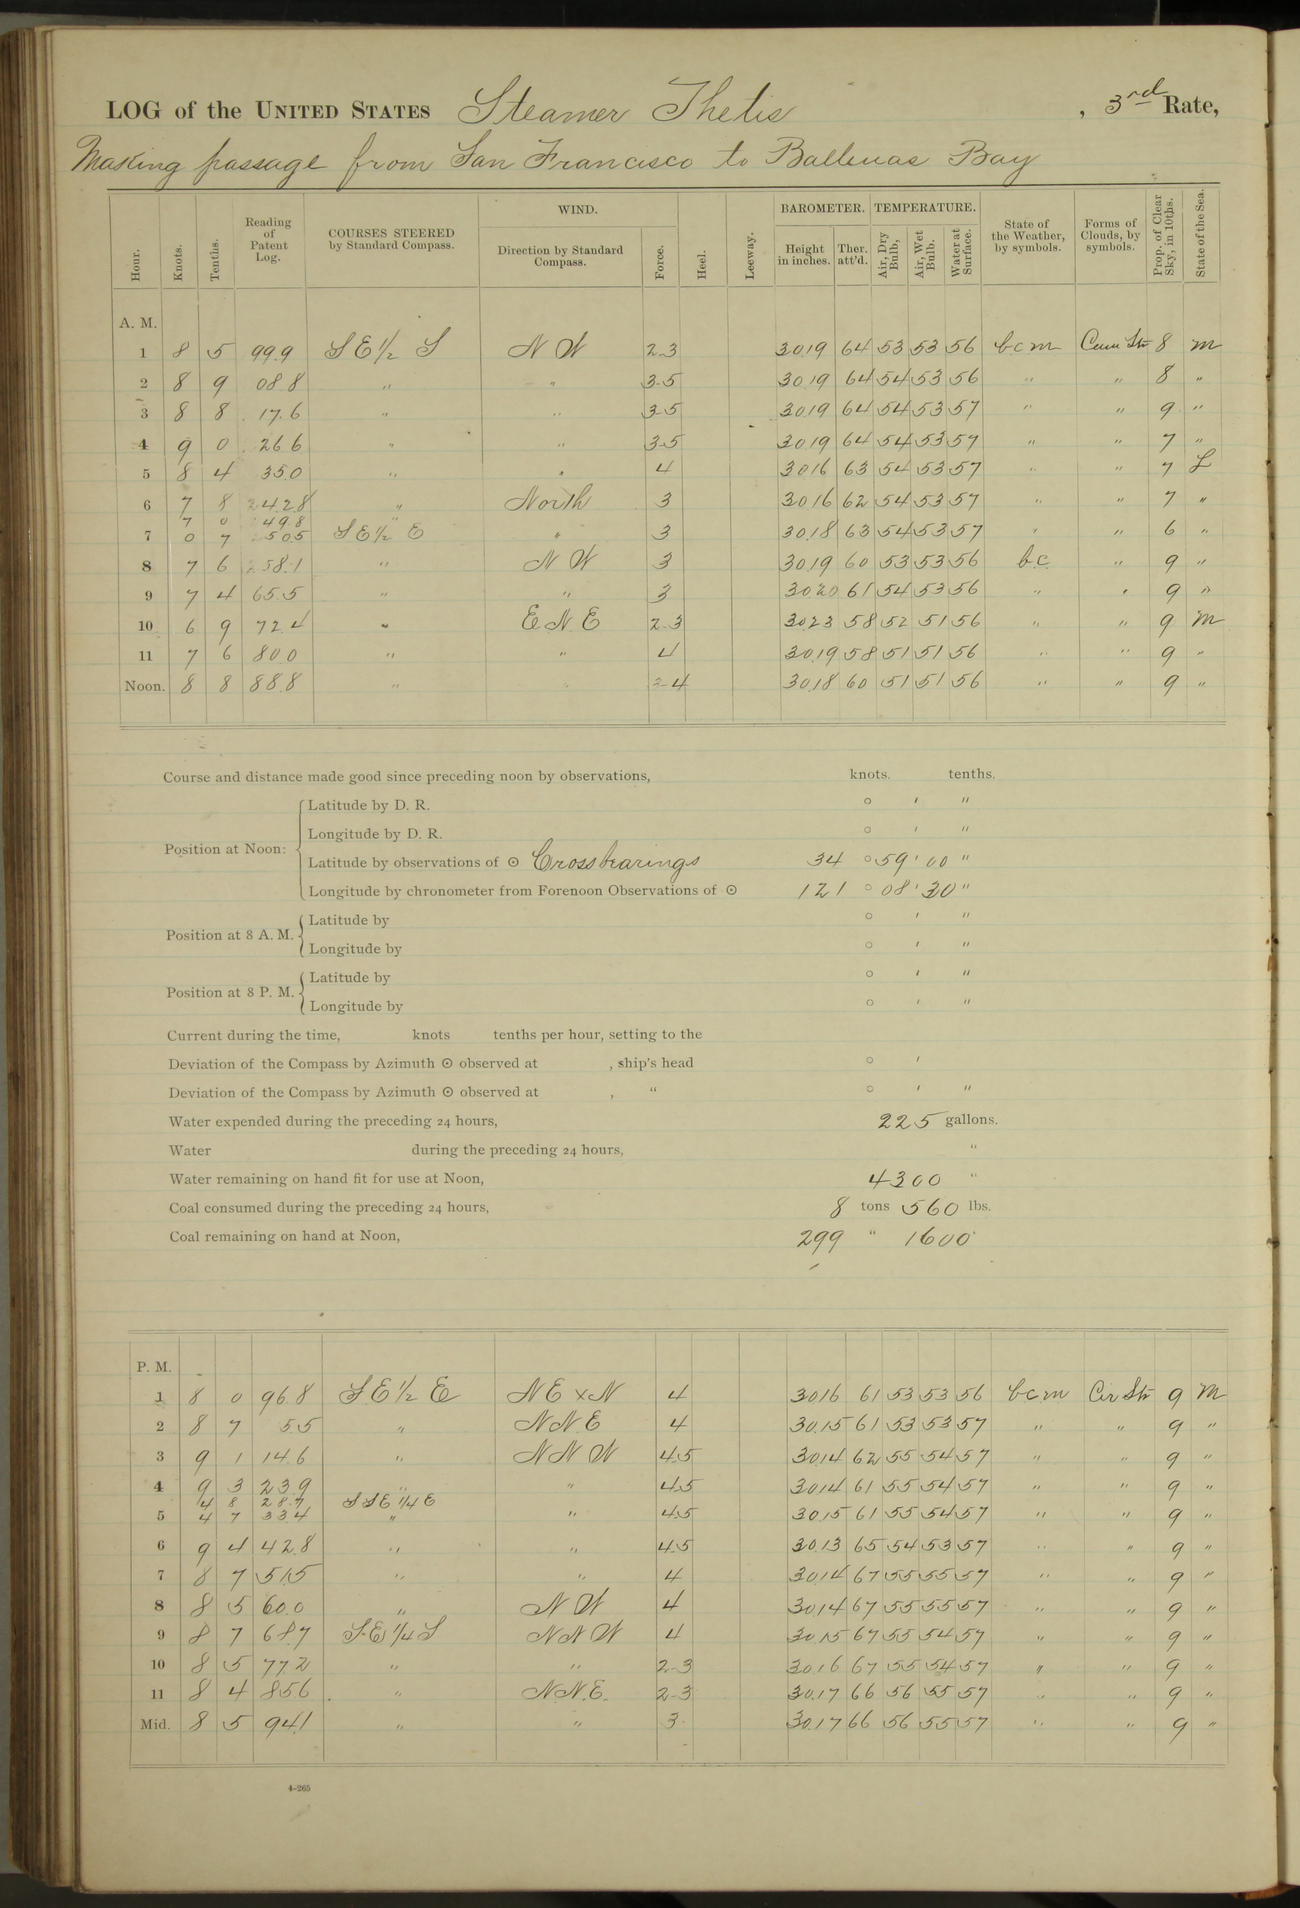 LOG of the UNITED STATES Steamer Thetis , 3rd Rate,
Making passage from San Francisco to Ballenas Bay
Hour. Knots. Tenths. Reading of Patent Log. COURSES STEERED by Standard Compass. WIND. Direction by Standard Compass. Force. Heel. Leeway. BAROMETER. Height in inches. Ther. att'd. TEMPERATURE. Air, Dry Bulb, Air, Wet Bulb. Water at Surface. State of the Weather, by symbols. Forms of Clouds, by symbols. Prop. of Clear Sky, in 10ths. State of the Sea.
A. M.
1 8 5 99.9 S E 1/2 S N W 2-3 30.19 64 53 53 56 b c m Cum Str 8 M
2 8 9 08.8 " " 3-5 30.19 64 54 53 56 " " 8 "
3 8 8 17.6 " " 3-5 30.19 64 54 53 57 " " 9 "
4 9 0 26.6 " " 3-5 30.19 64 54 53 57 " " 7 "
5 8 4 35.0 " " 4 30.16 63 54 53 57 " " 7 L
6 7 8 242.8 " North 3 30.16 62 54 53 57 " " 7 "
7 0 249.8 "
7 0 7 250.5 S E 1/2 E " 3 30.18 63 54 53 57 " " 6 "
8 7 6 258.1 " N W 3 30.19 60 53 53 56 b.c. " 9 "
9 7 4 65.5 " " 3 30.20 61 54 53 56 " " 9 "
10 6 9 72.4 " E N E 2-3 30.23 58 52 51 56 " " 9 M
11 7 6 80.0 " " 4 30.19 58 51 51 56 " " 9 "
Noon. 8 8 88.8 " " 2-4 30.18 60 51 51 56 " " 9 "
Course and distance made good since preceding noon by observations, knots. tenths.
Position at Noon:
Latitude by D. R. ° ′ ″
Longitude by D. R. ° ′ ″
Latitude by observations of ⊙ Crossbearings 34 ° 59 ′ 00 ″
Longitude by chronometer from Forenoon Observations of ⊙ 121 ° 08 ′ 30 ″
Position at 8 A. M.
Latitude by ° ′ ″
Longitude by ° ′ ″
Position at 8 P. M.
Latitude by ° ′ ″
Longitude by ° ′ ″
Current during the time, knots tenths per hour, setting to the
Deviation of the Compass by Azimuth ⊙ observed at , ship's head ° ′
Deviation of the Compass by Azimuth ⊙ observed at , " ° ′ ″
Water expended during the preceding 24 hours, 225 gallons.
Water during the preceding 24 hours, "
Water remaining on hand fit for use at Noon, 4300 "
Coal consumed during the preceding 24 hours, 8 tons 560 lbs.
Coal remaining on hand at Noon, 299 " 1600
P. M.
1 8 0 96.8 S E 1/2 E N E x N 4 30.16 61 53 53 56 b c m Cir Str 9 M
2 8 7 5.5 " N N E 4 30.15 61 53 53 57 " " 9 "
3 9 1 14.6 " N N W 4.5 30.14 62 55 54 57 " " 9 "
4 9 3 23.9 " " 4.5 30.14 61 55 54 57 " " 9 "
4 8 28.7 S S E 1/4 E
5 4 7 33.4 " " 4.5 30.15 61 55 54 57 " " 9 "
6 9 4 42.8 " " 4.5 30.13 65 54 53 57 " " 9 "
7 8 7 51.5 " " 4 30.14 67 55 55 57 " " 9 "
8 8 5 60.0 " N W 4 30.14 67 55 55 57 " " 9 "
9 8 7 68.7 S.E. 1/4 S N N W 4 30.15 67 55 54 57 " " 9 "
10 8 5 77.2 " " 2-3 30.16 67 55 54 57 " " 9 "
11 8 4 85.6 " N.N.E. 2-3 30.17 66 56 55 57 " " 9 "
Mid. 8 5 94.1 " " 3 30.17 66 56 55 57 " " 9 "
4-265